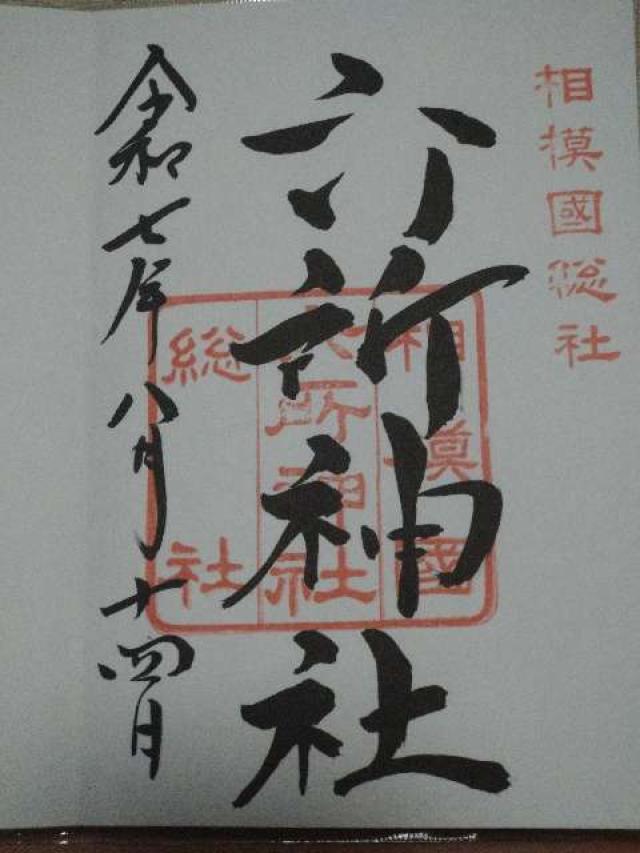 相模國総社
六所神社
相模國
六所神社
総社
令和七年八月十四日